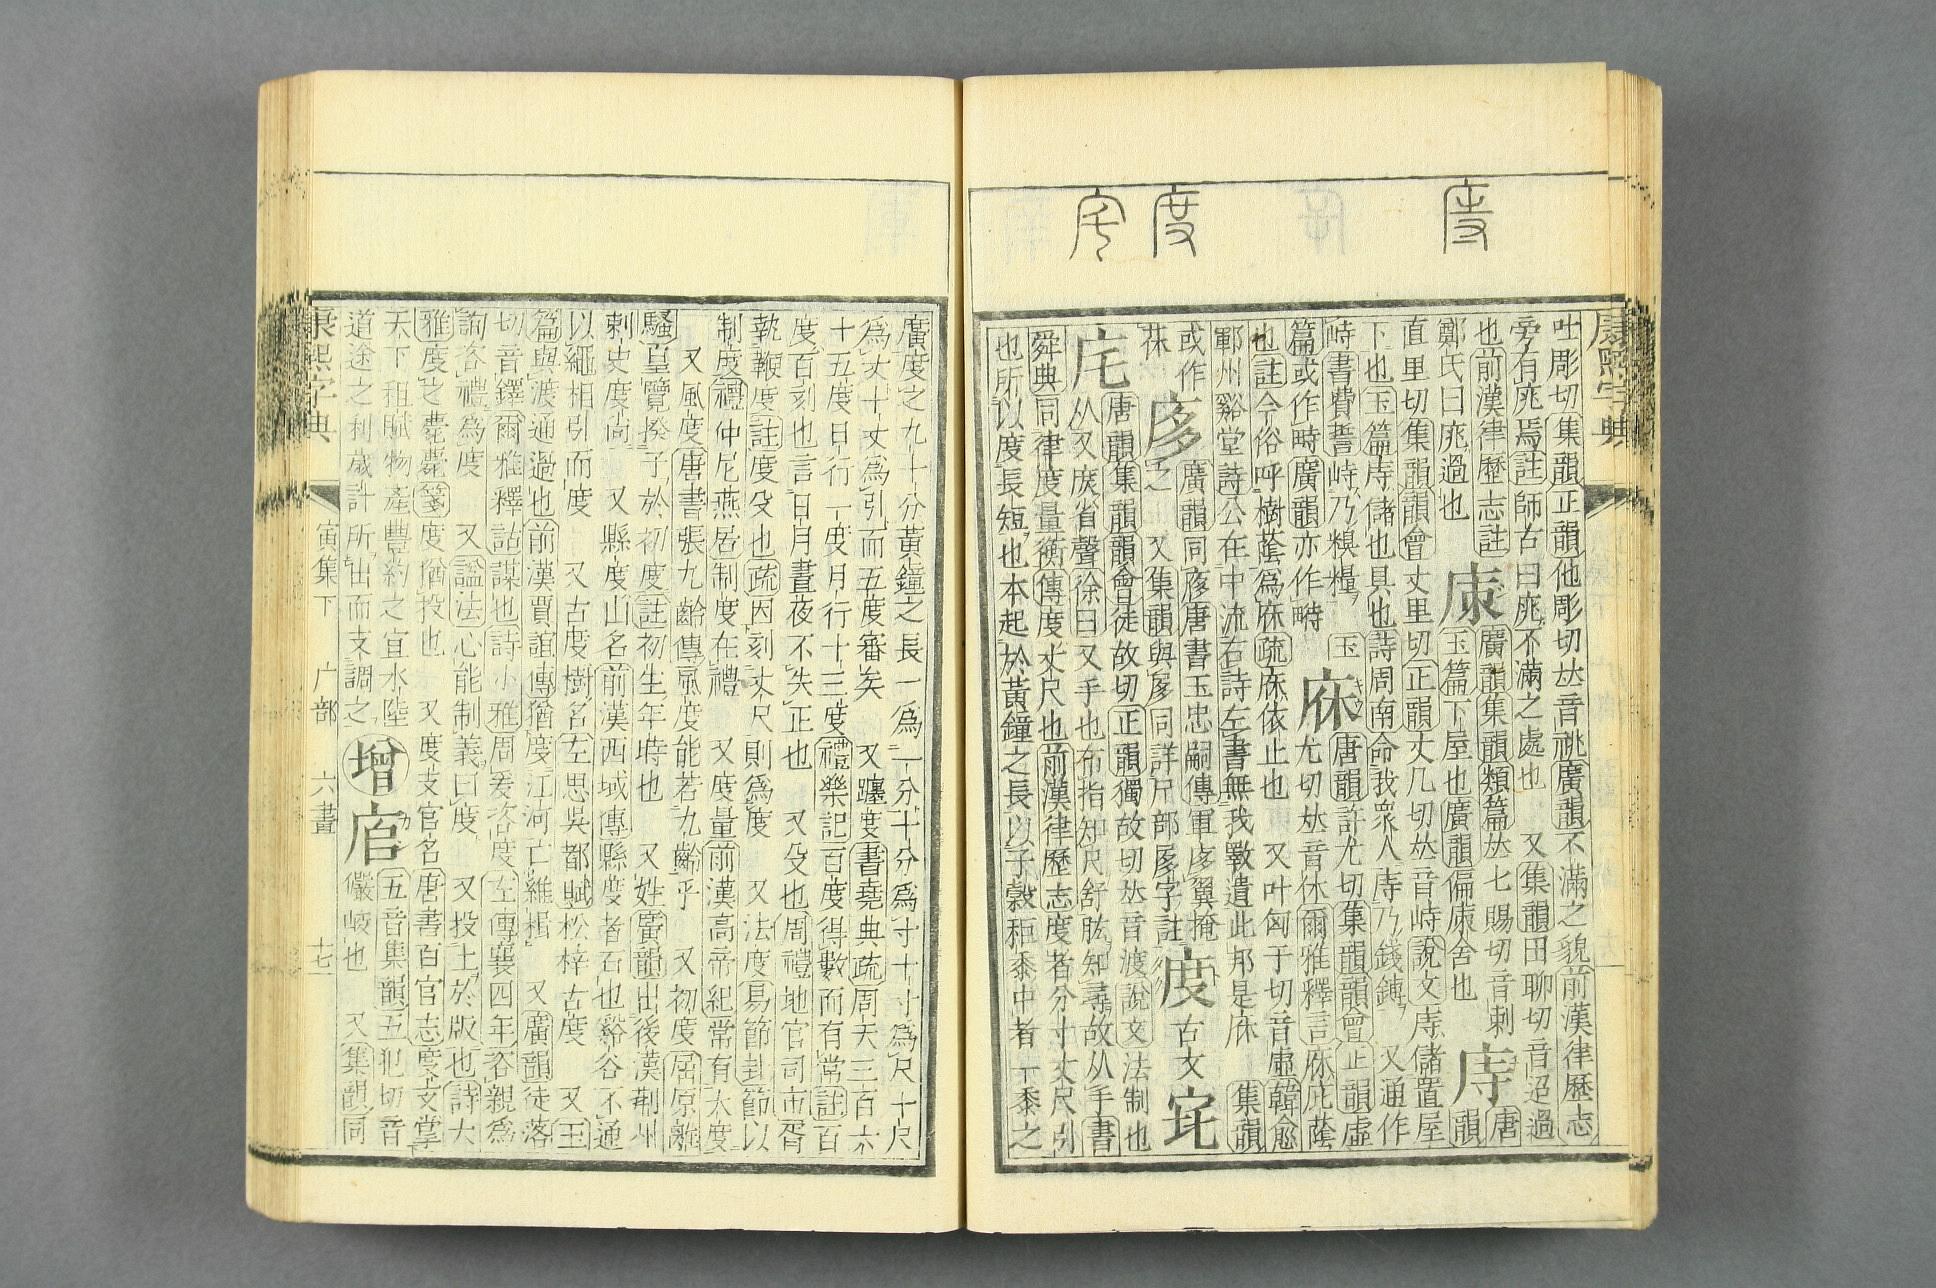 康熙字典
吐彫切集韻正韻他彫切𠀤音祧廣韻不滿之貌前漢律歷志
旁有庣焉註師古曰庣不滿之處也 又集韻田聊切音迢過
也前漢律歷志註
鄭氏曰庣過也
庲
廣韻集韻類篇𠀤七賜切音刺
玉篇下屋也廣韻偏庲舍也
庤
唐
韻
直里切集韻韻會丈里切正韻丈几切𠀤音峙說文庤儲置屋
下也玉篇庤儲也具也詩周南命我衆人庤乃錢鎛 又通作
峙書費誓峙乃糗糧 玉
篇或作畤廣韻亦作畤
庥
唐韻許尤切集韻韻會正韻虛
尤切𠀤音休爾雅釋言庥庇蔭
也註今俗呼樹蔭爲庥疏庥依止也 又叶匈于切音虛韓愈
鄆州谿堂詩公在中流右詩左書無我斁遺此邦是庥 集韻
或作
茠
廣韻同庥唐書王忠嗣傳軍翼掩
之 又集韻與㢋同詳尺部字註
度
古文
宅
唐韻集韻韻會徒故切正韻獨故切𠀤音渡說文法制也
从又庶省聲徐曰又手也布指知尺舒肱知尋故从手書
舜典同律度量衡傳度丈尺也前漢律歷志度者分寸丈尺引
也所以度長短也本起於黃鐘之長以子穀秬黍中者一黍之
廣度之九十分黃鐘之長一爲一分十分爲寸十寸爲尺十尺
爲丈十丈爲引而五度審矣 又躔度書堯典疏周天三百六
十五度日行一度月行十三度禮樂記百度得數而有常註百
度百刻也言日月晝夜不失正也 又殳也周禮地官司市胥
執鞭度註度殳也疏因刻丈尺則爲度 又法度易節卦節以
制度禮仲尼燕居制度在禮 又度量前漢高帝紀常有大度
又風度唐書張九齡傳風度能若九齡乎 又初度屈原離
騷皇覽揆予於初度註初生年時也 又姓廣韻出後漢荆州
刺史度尚 又縣度山名前漢西域傳縣度者石也谿谷不通
以繩相引而度 又古度樹名左思吳都賦松梓古度 又玉
篇與渡通過也前漢賈誼傳猶度江河亡維楫 又廣韻徒落
切音鐸爾雅釋詁謀也詩小雅周爰咨度左傳襄四年咨親爲
詢咨禮爲度 又謚法心能制義曰度 又投土於版也詩大
雅度之薨薨箋度猶投也 又度支官名唐書百官志度支掌
天下租賦物產豐約之宜水陸
道途之利歲計所出而支調之
增
五音集韻五犯切音
儼崄也 又集韻同
康熙字典 寅集下 广部 六畫 十七